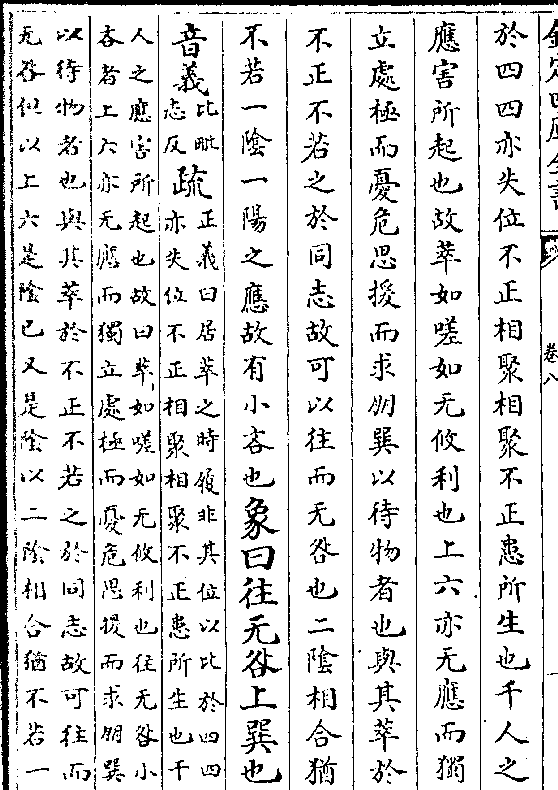 欽定四庫全書
卷八
於四四亦失位不正相聚相聚不正患所生也千人之
應害所起也故萃如嗟如无攸利也上六亦无應而獨
立處極而憂危思援而求朋巽以待物者也與其萃於
不正不若之於同志故可以往而无咎也二陰相合猶
不若一陰一陽之應故有小吝也象曰往无咎上巽也
音義比毗志反疏正義曰居萃之時履非其位以比於四四
亦失位不正相聚相聚不正患所生也千
人之應害所起也故曰萃如嗟如无攸利也往无咎小
吝者上六亦无應而獨立處極而憂危思援而求朋巽
以待物者也與其萃於不正不若之於同志故可往而
无咎但以上六是陰己又是陰以二陰相合猶不若一